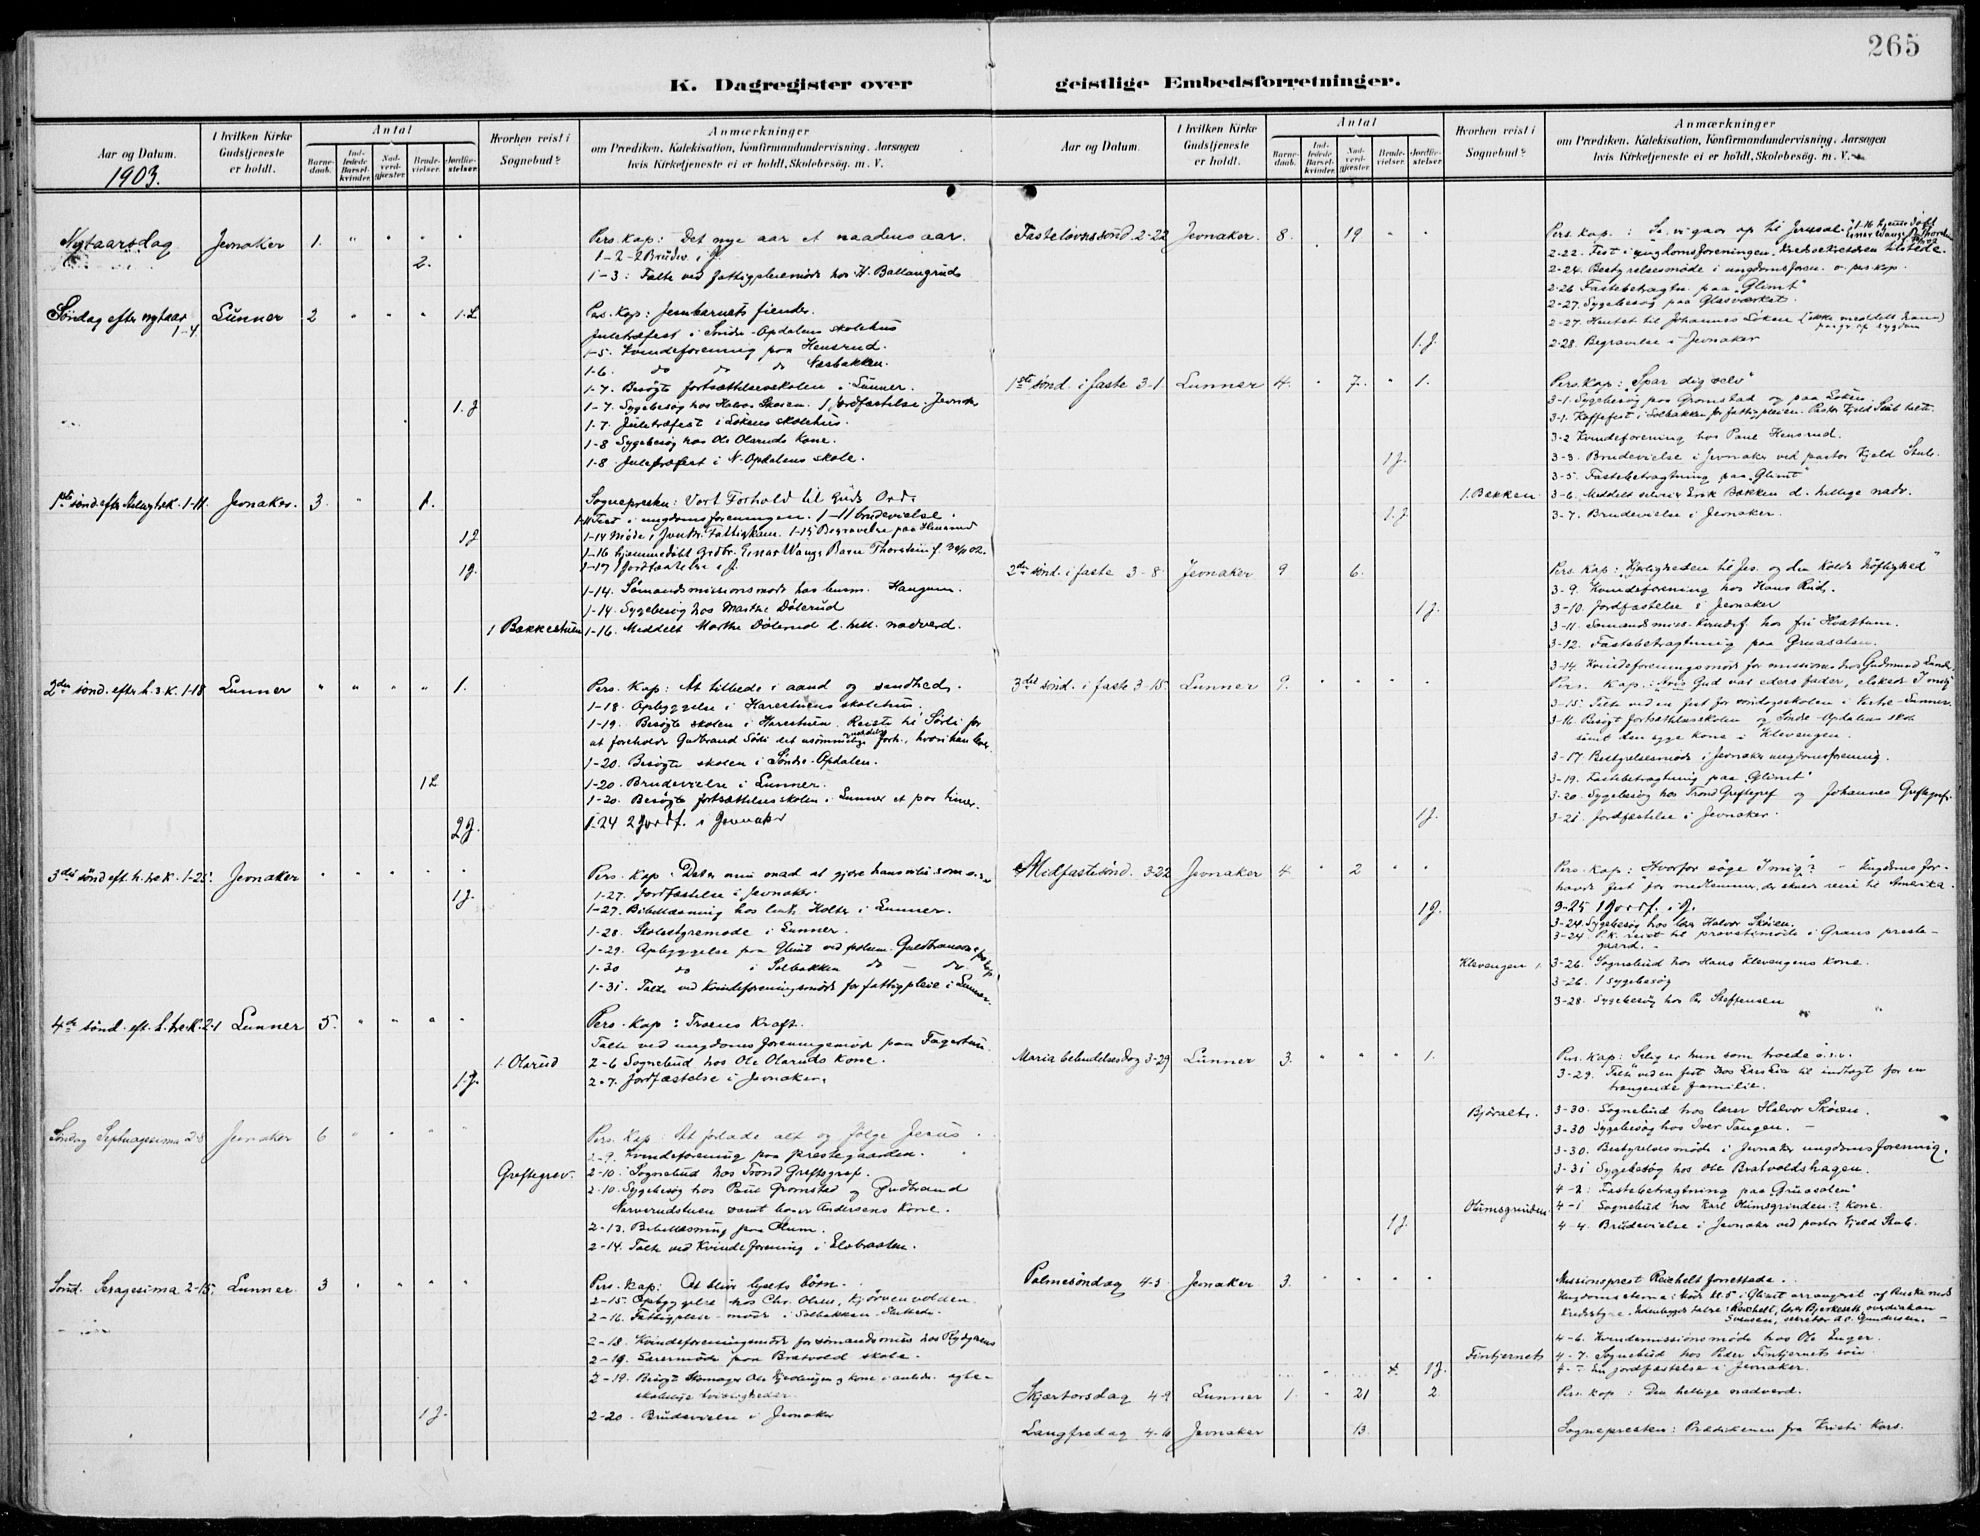 265
K. Dagregister over geistlige Embedsforretninger.
Aar og Datum.
1903.
I hvilken Kirke Gudstjeneste er holdt.
Antal
Barnedaab.
Indledede Barselkvinder.
Nadverdgjæster.
Brudevielser.
Jordfæstelser.
Hvorhen reist i Sognebud?
Anmærkninger
om Prædiken, Katekisation, Konfirmandundervisning, Aarsagen
hvis Kirketjeneste ei er holdt, Skolebesøg. m. V.
Nytaarsdag Jevnaker 1. " " " " Pers. kap: Det nye aar et naadens aar.
2. 1-2- 2 Brudev. i J.
1-3: Talte ved fattigpleiemøde hos H. Ballangruds
Søndag efter nytaar 1-4 Lunner 2 " " " 1.L Pers. Kap: Jesubarnets fiender.
Juletræfest i Søndre-Opdalens skolehus
1-5. Kvindeforening paa Hensrud.
1-6. do do do Næsbakken.
1-7. Besøgte fortsættelsesskolen i Lunner.
1.J 1-7. Sygebesøg hos Halvor Skøien. 1 jordfæstelse. Jevnaker
1-7. Juletræfest i Løkens skolehus.
1-8 Sygebesøg hos Ole Olaruds Kone.
1-8. Juletræfest i N-Opdalens skole.
1ste sønd. efter hellig tre k. 1-11. Jevnaker. 3. " 1. Sognepresten: Vort Forhold til Guds Ord.
1-11 Fest i ungdomsforeningen. 1-11 brudevielse.
1J 1-14 Møde i Jevnk. Fattigkom. 1-15 Begravelse paa Hensrud
1-16 hjemmedøbt Grdbr. Einar Wangs Barn Thorstein f. 30/10 02.
1J. 1-17 1 jordfæstelse i J.
1-14. Sømandsmissionsmøde hos husm. Haugum.
1-14. Sygebesøg hos Marthe Dølerud
1 Bækkestuen 1-16. Meddelt Marthe Dølerud d. hell. nadverd.
2den sønd. efter h. 3 K. 1-18 Lunner " " " " 1. Pers. Kap: At tilbede i aand og sandhed.
1-18. Opbyggelse i Harestuens skolehus.
1-19. Besøgte skolen i Harestuen. Reiste til Sørli for
at foreholde Gudbrand Sørli det usømmelige forh., hvori han lever.
1-20. Besøgte skolen i Søndre-Opdalen.
1L 1-20. Brudevielse i Lunner.
1-20. Besøgte fortsættelsesskolen i Lunner et par timer.
2J. 1-24 2 Jordf. i Jevnaker
3die sønd eft. h. tre K. 1-25. Jevnaker " " " " " Pers. Kap: Det er min mad at gjøre hans vilie som o.s.v
1J. 1-27. Jordfæstelse i Jevnaker.
1-27. Bibellæsning hos lensm. Holter i Lunner.
1-28. Skolestyremøde i Lunner.
1-29. Opbyggelse paa Glimt ved Guldbransen
1-30 do i Solbakken do - do.
1-31. Talte ved Kvindeforeningsmøde for fattigpleie i Lunner.
4de sønd. eft. h. tre K. 2-1 Lunner 5. " " " " Pers. Kap: Troens Kraft.
Talte ved ungdomsforeningsmøde paa Fagertun.
1. Olarud 2-6 Sognebud hos Ole Olaruds Kone.
1.J. 2-7. Jordfæstelse i Jevnaker.
Søndag Septuagesima 2-8 Jevnaker 6 " " " " Pers. Kap: At forlade alt og følge Jesus.
2-9. Kvindeforening paa prestegaarden.
Greftegrev. 2-10. Sognebud hos Trond Greftegref.
2-10. Sygebesøg hos Paul Gromstad og Gudbrand
Narverudstuen samt Andersens Kone.
2-13. Bibellæsning paa Hum.
2-14. Talte ved Kvindeforening i Elvbratten.
Sønd. Sexagesima 2-15. Lunner 3 " " " " Pers. Kap: At blive lysets børn.
2-15. Opbyggelse hos Chr. Olsen, Kjørvenvolden.
2-16. Fattigpleie-møde i Solbakken.
2-18. Kvindeforeningsmøde for sømandsmis. hos Rydgrens
2-19. Lærermøde paa Bratvold skole.
2-19. Besøgt Ole kone i anledn. egte-
skabelige
1J. 2-20. Brudevielse i Jevnaker
Aar og Datum.
I hvilken Kirke Gudstjeneste er holdt.
Antal
Barnedaab.
Indledede Barselkvinder.
Nadverdgjæster.
Brudevielser.
Jordfæstelser.
Hvorhen reist i Sognebud?
Anmærkninger
om Prædiken, Katekisation, Konfirmandundervisning, Aarsagen
hvis Kirketjeneste ei er holdt, Skolebesøg. m. V.
Fastelavnssønd. 2-22. Jevnaker. 8. " 19 " " Pers. Kap: Se, vi gaar op til Jerusal. 1-16 hjemmedøbt Einar Wangs
2-22. Fest i ungdomsforeningen. Kredssekretæren tilstede.
2-24. Bestyrelsesmøde i ungdomsforen. v. pers. kap.
2-26 Fastebetragtn. paa "Glimt"
2-27. Sygebesøg paa Glasværket.
2-27. Hentet til Johannes Løken (ikke meddelt
paa gr. af sygdom
1.J. 2-28. Begravelse i Jevnaker
1ste sønd. i faste 3-1. Lunner 4. " 7. " 1. Pers. Kap: "Spar dig selv"
3-1. Sygebesøg paa Gromstad og paa Løken.
3-1. Kaffefest i Solbakken for fattigpleien. Pastor Kjeld Stub talte.
3-2 Kvindeforening hos Paul Hensrud.
1J. 3-3. Brudevielse i Jevnaker ved pastor Kjeld Stub.
3-5. Fastebetragtning paa "Glimt"
1. Bakken 3-6. Meddelt Erik Bakken d. hellige nadv.
1.J 3-7. Brudevielse i Jevnaker.
2den sønd. i faste 3-8. Jevnaker 9 " 6. Pers. Kap: "Kjærligheden til Jes. og den kolde høflighed"
3-9. Kvindeforening hos Hans Rud.
1J. 3-10. Jordfæstelse i Jevnaker
3-11. Sømandsmis. Kvindef. hos fru Hvattum.
3-12. Fastebetragtning paa Gruasalen.
3-14. Kvindeforeningsmøde for missionen hos Gudmund
3die sønd. i faste 3-15. Lunner 9. " " " " Pers. Kap: Hvis Gud var eders fader, elsked I mig
3-15. Talte ved en fest for søndagsskolen i Vestre-Lunner.
3-16 Besøgt fortsættelsesskolen og Søndre-Opdalens skole
samt den syge kone i Klevengen.
3-17. Bestyrelsesmøde i Jevnaker ungdomsforening.
3-19. Fastebetragtning paa "Glimt"
3-20. Sygebesøg hos Trond Greftegref og Johannes Greftegref.
1J. 3-21. Jordfæstelse i Jevnaker.
Midfastesønd. 3-22 Jevnaker 4. " 2 " " Pers. Kap: Hvorfor søge I mig? - Ungdomsfor-
havde fest for medlemmer, der skulde reise til Amerika.
1J. 3-25 1 Jordf. i J.
3-24. Sygebesøg hos lærer Halvor Skøien.
3-24. P.K. reist til provstemøde i Grans preste-
gaard.
Klevengen 1. 3-26. Sognebud hos Hans Klevengens Kone.
3-26. 1 sygebesøg
3-28. Sygebesøg hos Per Steffensen
Maria bebudelsesdag 3-29 Lunner 3. " " " 1. Pers. Kap: Salig er hun som troede o.s.v.
3-29. Talte ved en fest hos Lars Lia til indtægt for en
trængende familie.
Bjøralt. 3-30. Sognebud hos lærer Halvor Skøien.
3-30 Sygebesøg hos Iver Tangen.
3-30. Bestyrelsesmøde i Jevnaker ungdomsforening.
3-31 Sygebesøg hos Ole Bratvoldshagen.
4-2: Fastebetragtning paa "Gruasalen"
Olumsgrinden 4-1 Sognebud hos Karl Olumsgrinden's Kone.
1J. 4-4. Brudevielse i Jevnaker ved pastor Kjeld Stub.
Palmesøndag 4-5 Jevnaker 3. " " " " Missionsprest Reichelt forrettede.
Ungdomsstevne: Møde kl. 5 i Glimt arrangeret af
Kredsstyre. Udenbygds talere: Reichelt, lærer Bjerkeseth, overdiakon
Svensen, sekretær A.O. Gundersen.
4-6. Kvindemissionsmøde hos Ole Enger.
Fintjernets 4-7. Sognebud hos Peder Fintjernets
1J. 4-7 En jordfæstelse i Jevnaker.
Skjærtorsdag 4-9 Lunner 1. " 21 2 Pers. Kap: Den hellige nadverd.
Langfredag 4-10 Jevnaker 13. Sognepresten: Prædikenen fra Kristi Kors.